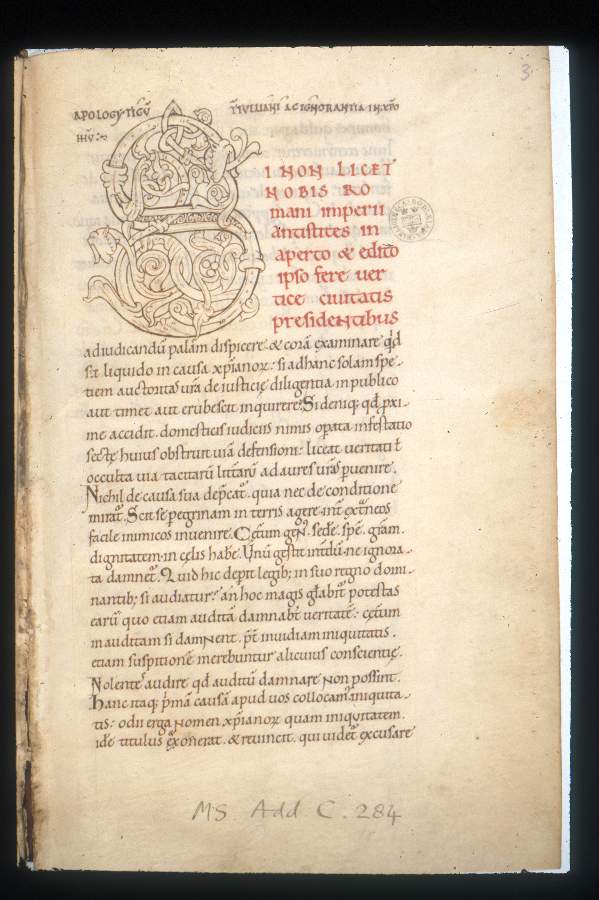 3
APOLOGYTICŪ TERTULLIANI AC IGNORANTIA IN XPO
SI NON LICET
NOBIS RO
mani imperii
antistites in
aperto & edito
ipso fere ver
tice ciuitatis
presidentibus
adiudicandū palam dispicere & corā examinare qd
sit liquido in causa xp̄ianoꝝ: si ad hanc solam spe-
tiem auctoritas ur̄a de iusticię diligentia in publico
aut timet aut erubescit inquirere: Si deniq; qd pxi-
me accidit. domesticis iudiciis nimis opata infestatio
sectę huius obstruit uiā defensioni: liceat ueritati ł
occulta uia tacitarū litt̄arū ad aures ur̄as puenire.
Nichil de causa sua dep̄cat̄. quia nec de conditione
mirat̄. Scit se pegrinam in terris agere. int̄ ext̄neos
facile inimicos inuenire. Cet̄um gen̄. sedē. spē. gr̄am.
dignitatem. in cęlis habē. Unū gestit int̄dū. ne ignora-
ta damnet̄. Quid hic depit legib; in suo regno domi-
nantib; si audiatur? an hoc magis gl̄abit̄ potestas
earū quo etiam auditā damnabt̄ ueritatē: cet̄um
inauditam si damnent. pt̄ inuidiam iniquitatis.
etiam suspitionē merebuntur alicuius conscientię.
Nolentes audire qd auditū damnare non possint.
Hanc itaq; p̄mā causā apud uos collocam̄ iniquita-
tis: odii erga nomen xp̄ianoꝝ quam iniqitatem.
idē titulus & onerat. & reuincit. qui uidet̄ excusare
MS Add C. 284